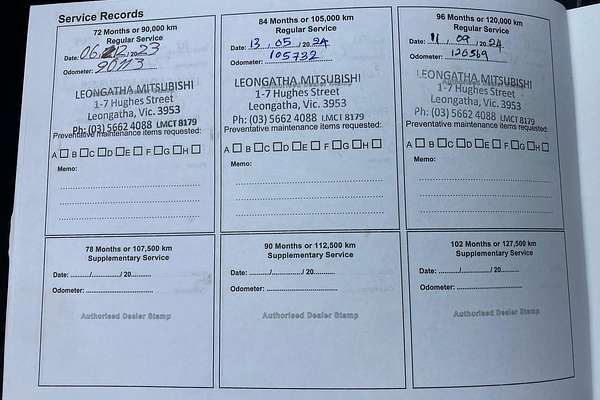 Service Records
72 Months or 90,000 km
Regular Service
Date: 06 12 20 23
Odometer: 90113
LEONGATHA MITSUBISHI
1-7 Hughes Street
Leongatha, Vic. 3953
Ph: (03) 5662 4088 LMCT 8179
Preventative maintenance items requested:
A B C D E F G H
Memo:
84 Months or 105,000 km
Regular Service
Date: 13 . 05 / 20 24
Odometer: 105732
LEONGATHA MITSUBISHI
1-7 Hughes Street
Leongatha, Vic. 3953
Ph: (03) 5662 4088 LMCT 8179
Preventative maintenance items requested:
A B C D E F G H
Memo:
96 Months or 120,000 km
Regular Service
Date: 11 , 09 / 20 24
Odometer: 120569
LEONGATHA MITSUBISHI
1-7 Hughes Street
Leongatha, Vic. 3953
Ph: (03) 5662 4088 LMCT 8179
Preventative maintenance items requested:
A B C D E F G H
Memo:
78 Months or 107,500 km
Supplementary Service
Date: ........../........../ 20..........
Odometer: ..............................
Authorised Dealer Stamp
90 Months or 112,500 km
Supplementary Service
Date: ........../........../ 20..........
Odometer: ..............................
Authorised Dealer Stamp
102 Months or 127,500 km
Supplementary Service
Date: ........../........../ 20..........
Odometer: ..............................
Authorised Dealer Stamp